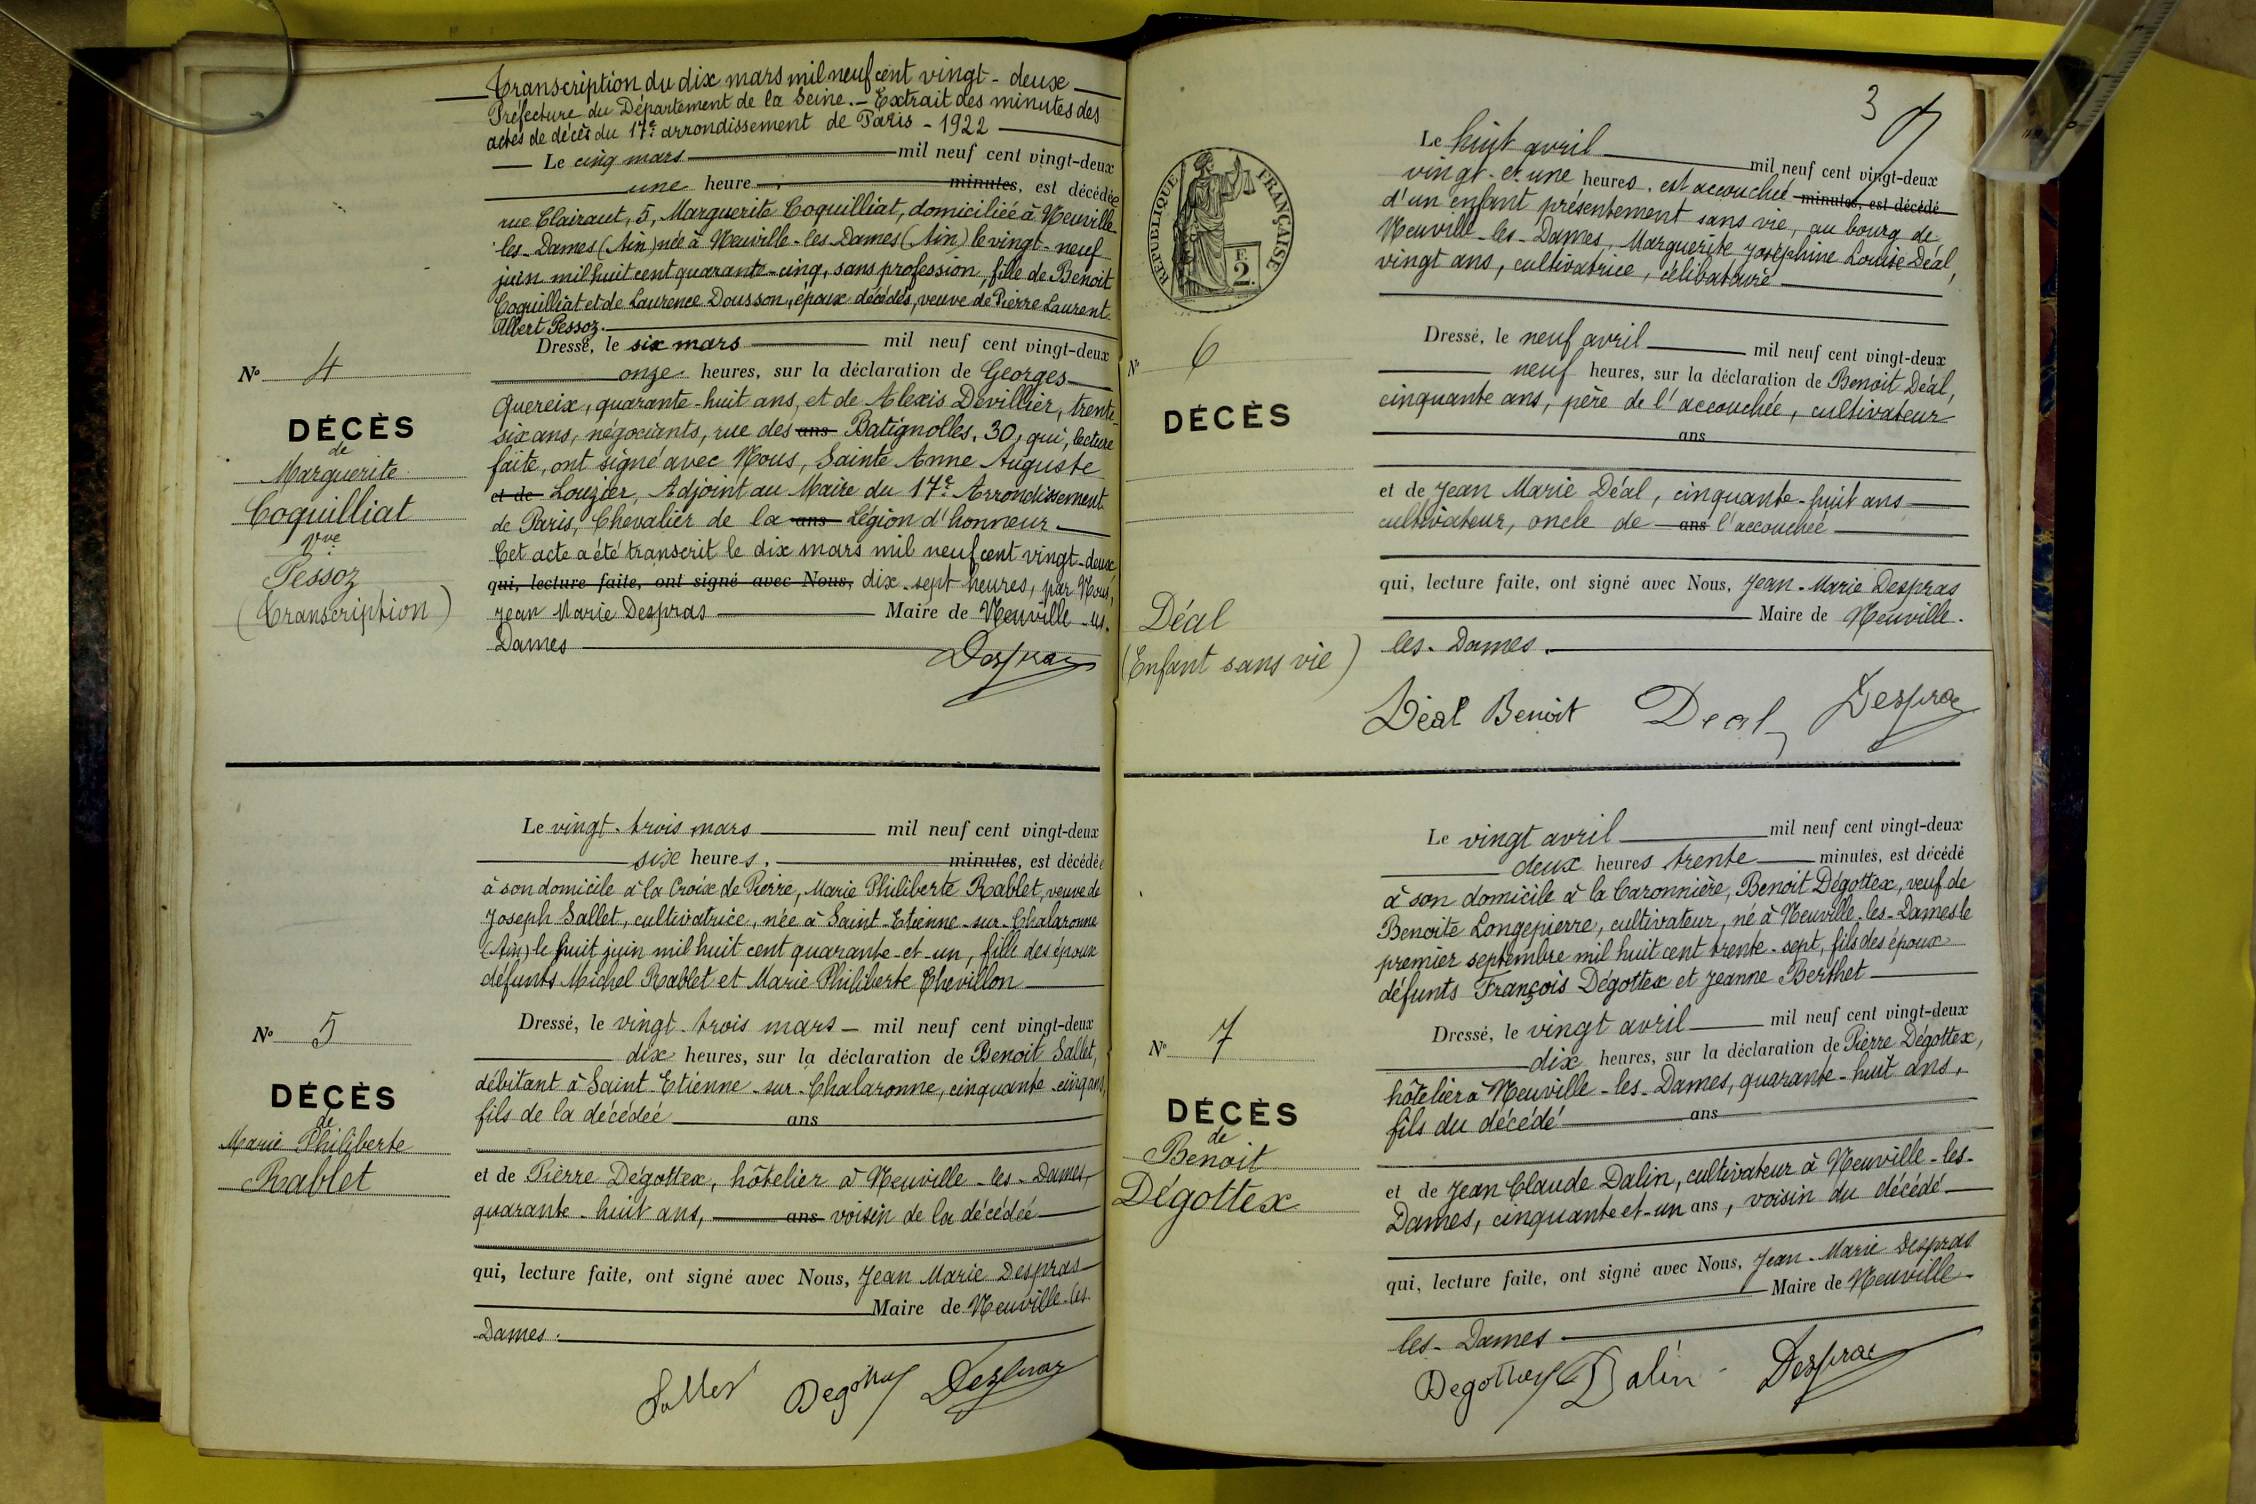 Transcription du dix mars mil neuf cent vingt-deux
Préfecture du Département de la Seine. - Extrait des minutes des
actes de décès du 17e arrondissement de Paris - 1922
Le cinq mars mil neuf cent vingt-deux
une heure minutes, est décédée
rue Clairaut, 5, Marguerite Coquilliat, domiciliée à Neuville-
les-Dames (Ain) née à Neuville-les-Dames (Ain) le vingt-neuf
juin mil huit cent quarante-cinq, sans profession, fille de Benoit
Coquilliat et de Laurence Dousson, époux décédés, veuve de Pierre Laurent
Albert Pessoz.
Dressé, le six mars mil neuf cent vingt-deux
onze heures, sur la déclaration de Georges
Quereix, quarante-huit ans, et de Alexis Devillier, trente-
six ans, négociants, rue des ans Batignolles, 30, qui, lecture
faite, ont signé avec Nous, Sainte Anne Auguste
et de Louzier, Adjoint au Maire du 17e Arrondissement
de Paris, Chevalier de la ans Légion d'honneur
Cet acte a été transcrit le dix mars mil neuf cent vingt-deux
qui, lecture faite, ont signé avec Nous, dix-sept heures, par Nous,
Jean Marie Despras Maire de Neuville-les-
Dames
Despras
No 4
DÉCÈS
de
Marguerite
Coquilliat
vve
Pessoz
(Transcription)
Le vingt-trois mars mil neuf cent vingt-deux
six heures, minutes, est décédée
à son domicile à la Croix de Pierre, Marie Philiberte Rablet, veuve de
Joseph Sallet, cultivatrice, née à Saint-Etienne-sur-Chalaronne
(Ain) le huit juin mil huit cent quarante-et-un, fille des époux
défunts Michel Rablet et Marie Philiberte Chevillon
Dressé, le vingt-trois mars mil neuf cent vingt-deux
dix heures, sur la déclaration de Benoit Sallet,
débitant à Saint Etienne-sur-Chalaronne, cinquante-cinq ans,
fils de la décédée ans
et de Pierre Dégottex, hôtelier à Neuville-les-Dames,
quarante-huit ans, ans voisin de la décédée
qui, lecture faite, ont signé avec Nous, Jean Marie Despras
Maire de Neuville-les-
Dames.
Sallet Degottex Despras
No 5
DÉCÈS
de
Marie Philiberte
Rablet
3
RÉPUBLIQUE FRANÇAISE
2 F.
Le huit avril mil neuf cent vingt-deux
vingt-et-une heures, est accouchée minutes, est décédé
d'un enfant présentement sans vie, au bourg de
Neuville-les-Dames, Marguerite Joséphine Louise Déal,
vingt ans, cultivatrice, célibataire
Dressé, le neuf avril mil neuf cent vingt-deux
neuf heures, sur la déclaration de Benoit Déal,
cinquante ans, père de l'accouchée, cultivateur
ans
et de Jean Marie Déal, cinquante-huit ans
cultivateur, oncle de ans l'accouchée
qui, lecture faite, ont signé avec Nous, Jean-Marie Despras
Maire de Neuville-
les-Dames.
Déal Benoit Deal Despras
No 6
DÉCÈS
Déal
(Enfant sans vie)
Le vingt avril mil neuf cent vingt-deux
deux heures trente minutes, est décédé
à son domicile à la Caronnière, Benoit Dégottex, veuf de
Benoite Longepierre, cultivateur, né à Neuville-les-Dames le
premier septembre mil huit cent trente-sept, fils des époux
défunts François Dégottex et Jeanne Berthet
Dressé, le vingt avril mil neuf cent vingt-deux
dix heures, sur la déclaration de Pierre Dégottex,
hôtelier à Neuville-les-Dames, quarante-huit ans,
fils du décédé ans
et de Jean Claude Dalin, cultivateur à Neuville-les-
Dames, cinquante et-un ans, voisin du décédé
qui, lecture faite, ont signé avec Nous, Jean-Marie Despras
Maire de Neuville-
les-Dames
Degottex Dalin Despras
No 7
DÉCÈS
de
Benoit
Dégottex